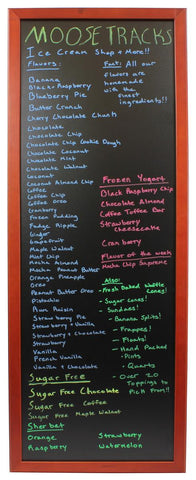 MOOSE TRACKS
Ice Cream Shop & More!!
Flavors:
Banana
Black Raspberry
Blueberry Pie
Butter Crunch
Cherry Chocolate Chunk
Chocolate
Chocolate Chip
Chocolate Chip Cookie Dough
Chocolate Coconut
Chocolate Mint
Chocolate Walnut
Coconut
Coconut Almond Chip
Coffee
Coffee Chip
Coffee Oreo
Cranberry
Frozen Pudding
Fudge Ripple
Ginger
Grapefruit
Maple Walnut
Mint Chip
Mocha Almond
Mocha Peanut Butter
Orange Pineapple
Oreo
Peanut Butter Oreo
Pistachio
Rum Raisin
Strawberry Pie
Strawberry + Vanilla
Strawberry + Chocolate
Strawberry
Vanilla
French Vanilla
Vanilla + Chocolate
Sugar Free
Sugar Free Chocolate
Sugar Free Coffee
Sugar Free Maple Walnut
Sherbet
Orange
Raspberry
Strawberry
Watermelon
Fact: All our
flavors are
homemade
with the
finest
ingredients!!
Frozen Yogurt
Black Raspberry Chip
Chocolate Almond
Coffee Toffee Bar
Strawberry
Cheesecake
Cranberry
Flavor of the week
Mocha Chip Supreme
Also:
- Fresh Baked Waffle
Cones!
- Sugar Cones!
- Sundaes!
- Banana Splits!
- Frappes!
- Floats!
- Hand Packed
- Pints
- Quarts
- Over 20
Toppings to
Pick From!!